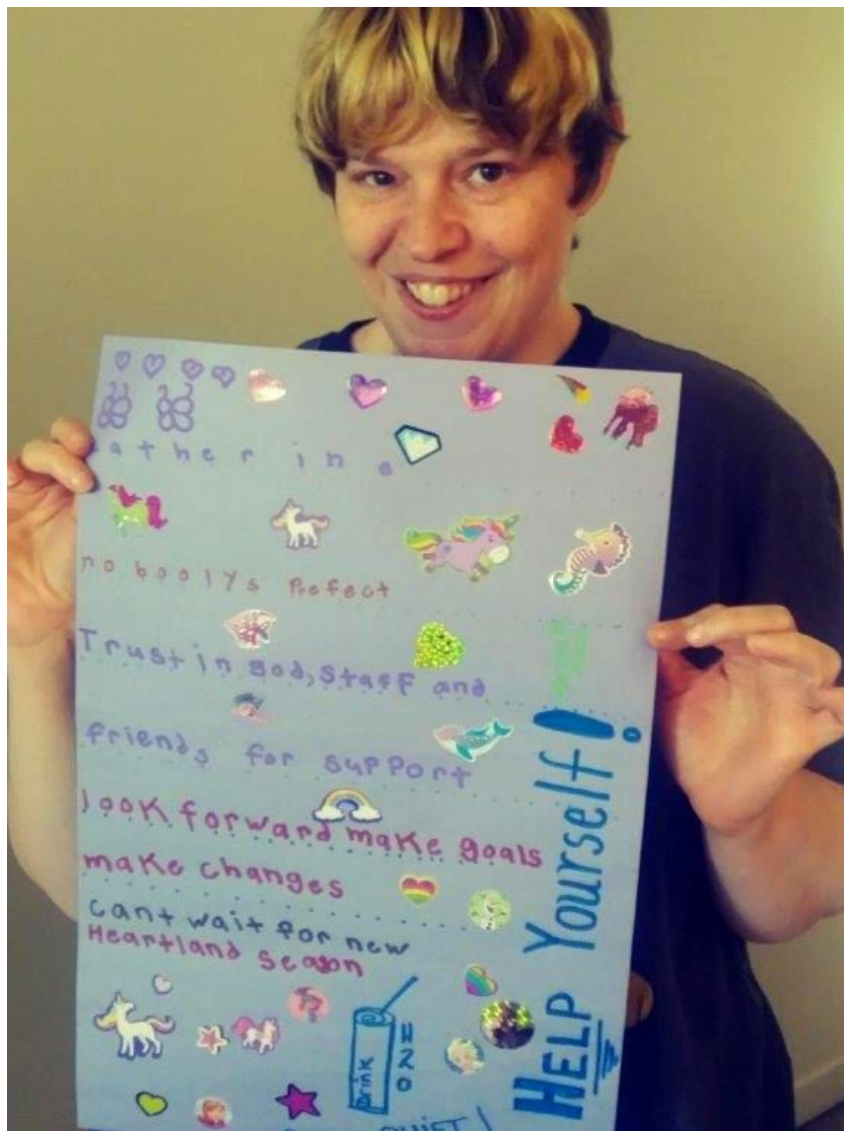 atherine
nobodys Prefect
Trust in god, staff and
friends for support
look forward make goals
make changes
cant wait for new
Heartland season
Drink
H2O
HELP Yourself!
QUIET!